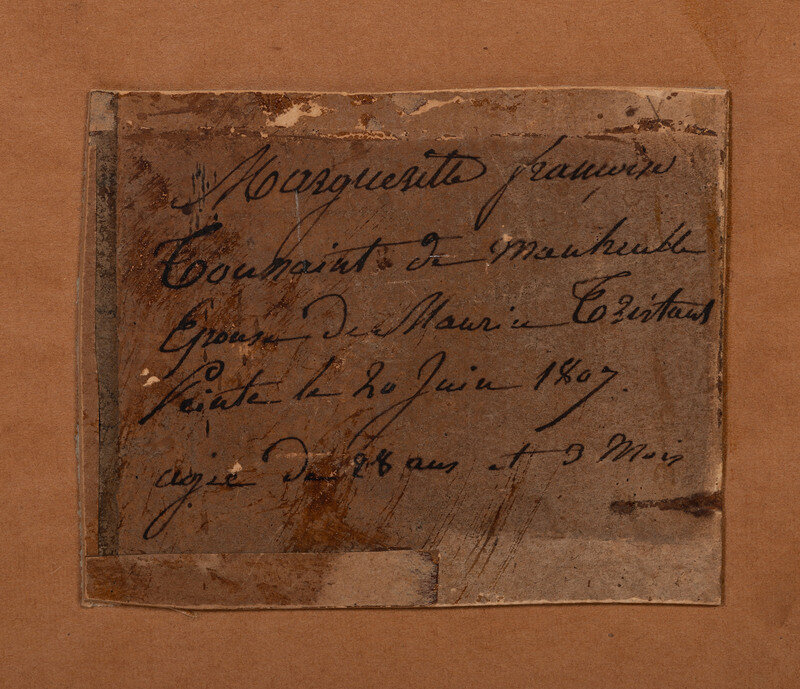 Marguerite françoise
Toussaint de
Epouse de Maurice Tristant
Peinte le 20 Juin 1807.
agée de 28 ans et 3 Mois